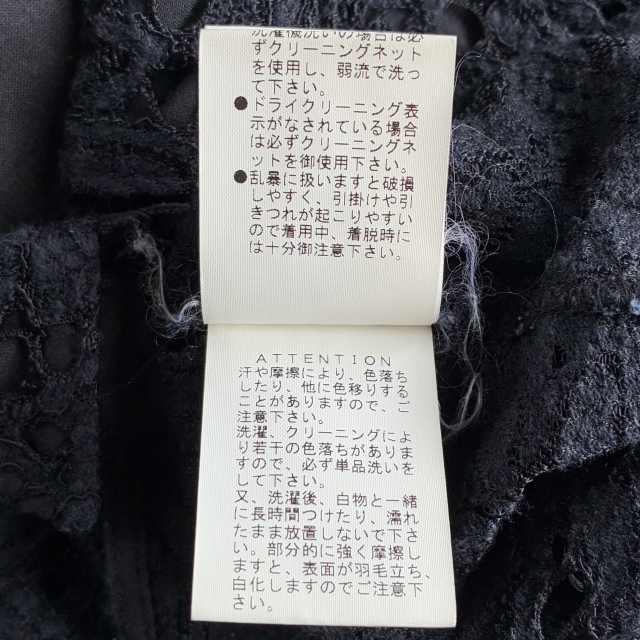 洗濯機洗いの場合は必
ずクリーニングネット
を使用し、弱流で洗っ
て下さい。
●ドライクリーニング表
示がなされている場合
は必ずクリーニングネ
ットを御使用下さい。
●乱暴に扱いますと破損
しやすく、引掛けや引
きつれが起こりやすい
ので着用中、着脱時に
は十分御注意下さい。
ATTENTION
汗や摩擦により、色落ち
したり、他に色移りする
ことがありますので、ご
注意下さい。
洗濯、クリーニングによ
り若干の色落ちがありま
すので、必ず単品洗いを
して下さい。
又、洗濯後、白物と一緒
に長時間つけたり、濡れ
たまま放置しないで下さ
い。部分的に強く摩擦し
ますと、表面が羽毛立ち、
白化しますのでご注意下
さい。